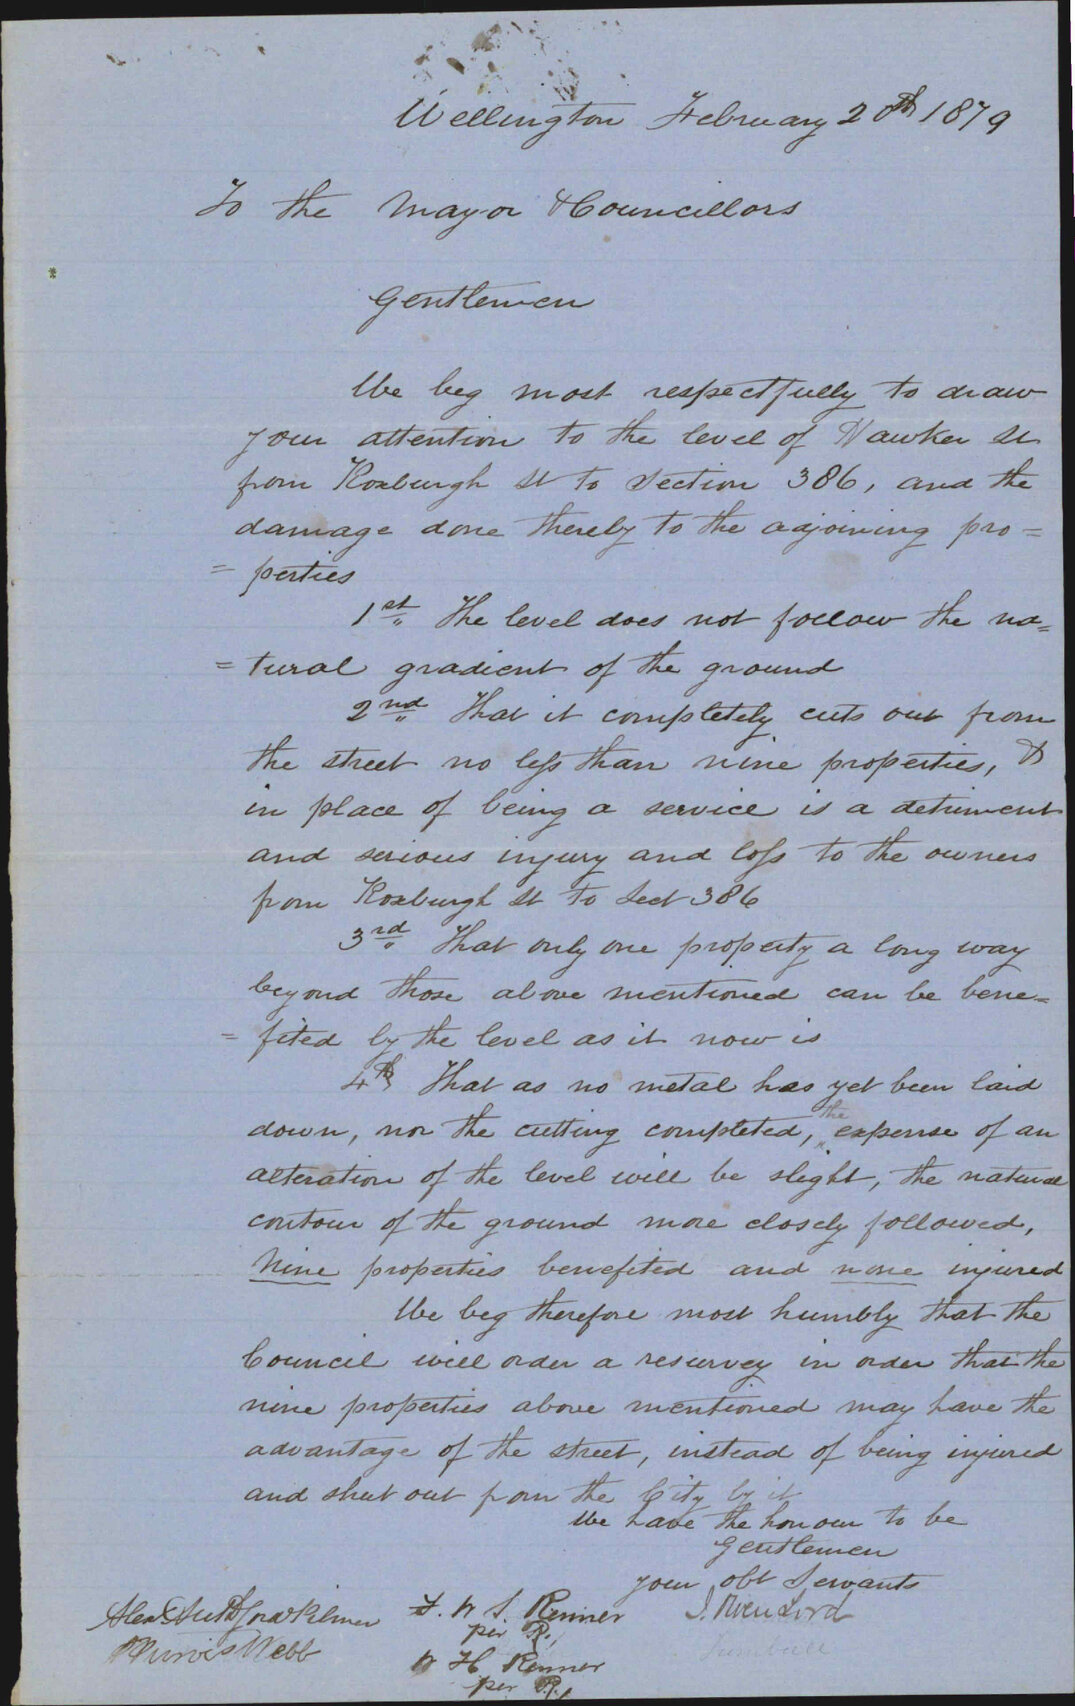 Wellington February 20th 1879
To the Mayor & Councillors
Gentlemen
We beg most respectfully to draw
your attention to the level of Hawker St
from Roxburgh St to Section 386, and the
damage done thereby to the adjoining pro=
= perties
1st The level does not follow the na=
= tural gradient of the ground
2nd That it completely cuts out from
the street no less than nine properties, &
in place of being a service is a detriment
and serious injury and loss to the owners
from Roxburgh St to Sect 386
3rd That only one property a long way
beyond those above mentioned can be bene=
= fited by the level as it now is
4th That as no metal has yet been laid
down, nor the cutting completed, the expense of an
alteration of the level will be slight, the natural
contour of the ground more closely followed,
Nine properties benefited and none injured
We beg therefore most humbly that the
Council will order a resurvey in order that the
nine properties above mentioned may have the
advantage of the street, instead of being injured
and shut out from the City by it
We have the honour to be
Gentlemen
your obt Servants
F. W S. Renner
per R.
W H Renner
per R.
Webb
Turnbull